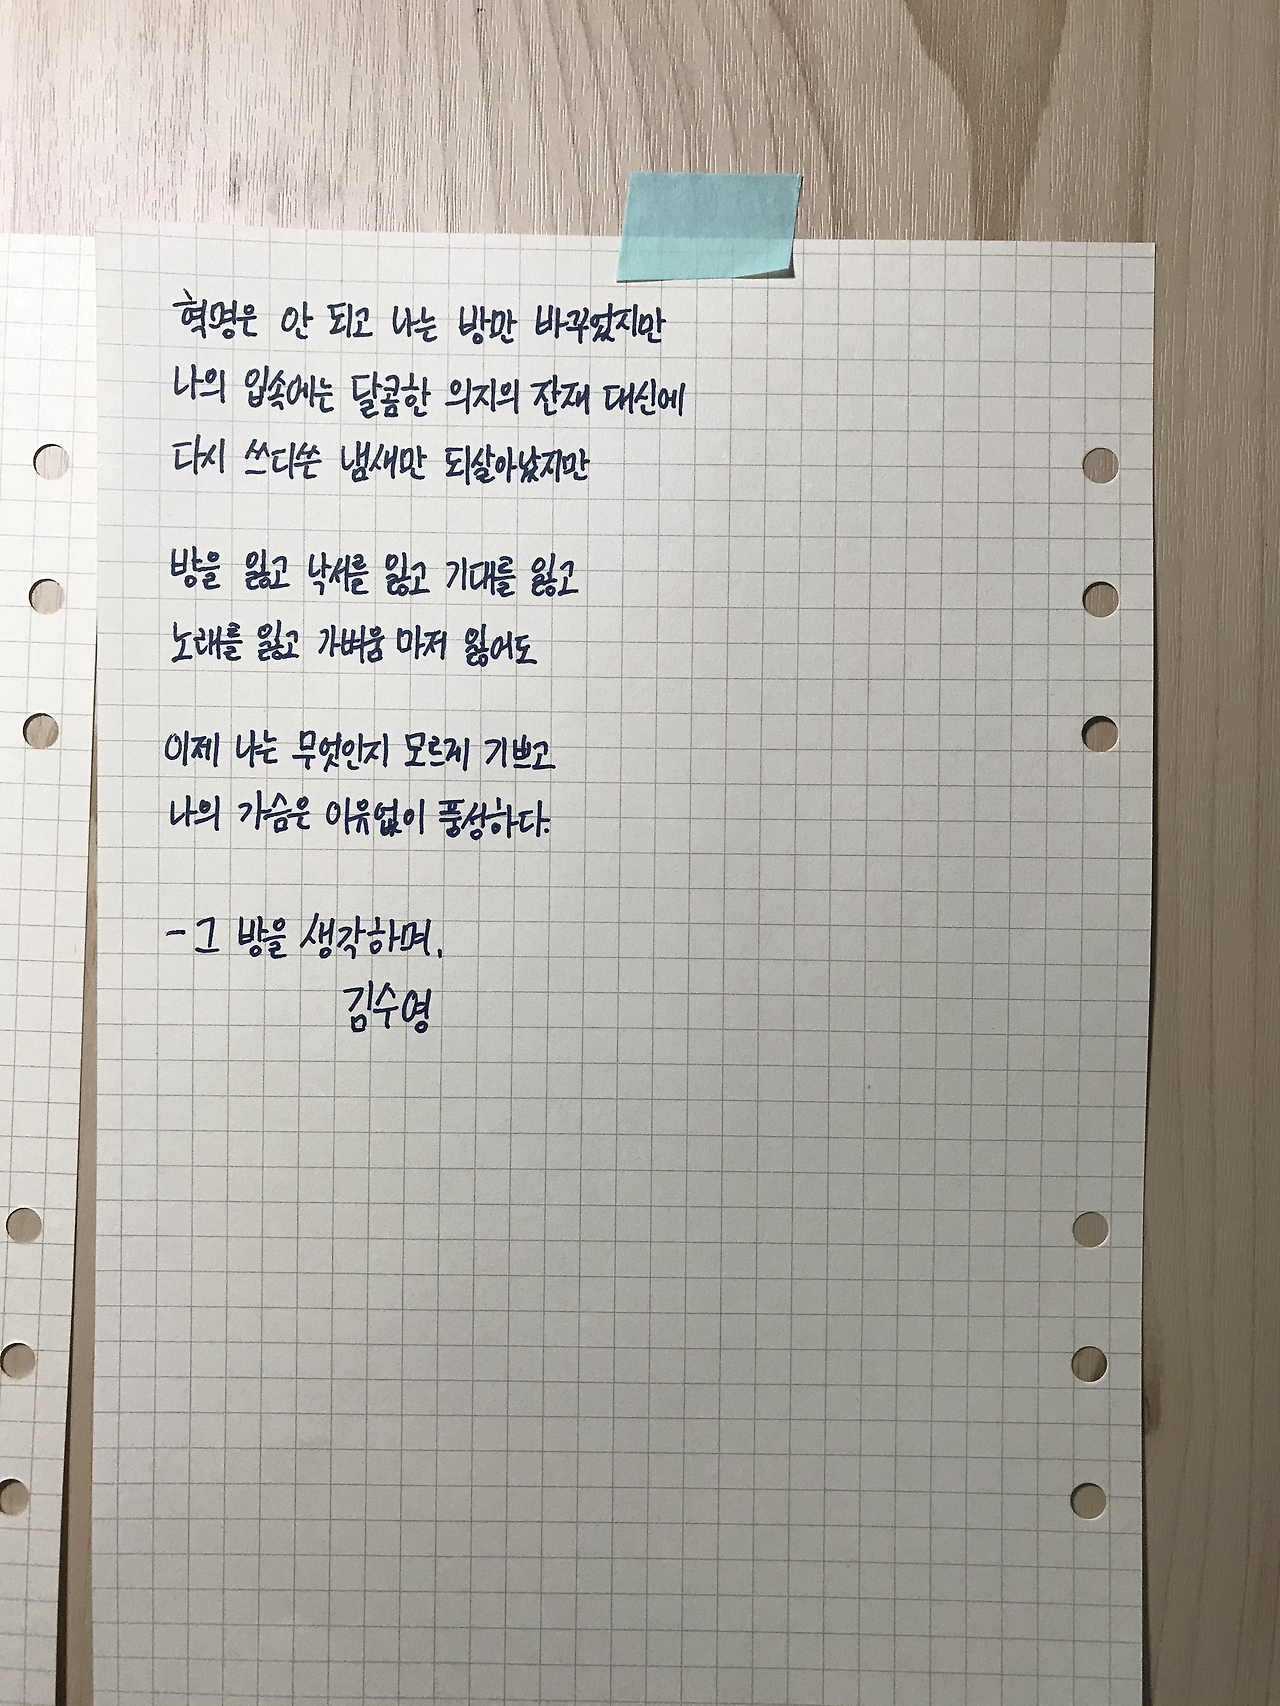 혁명은 안 되고 나는 방만 바꾸었지만
나의 입속에는 달콤한 의지의 잔재 대신에
다시 쓰디쓴 냄새만 되살아났지만
방을 잃고 낙서를 잃고 기대를 잃고
노래를 잃고 가벼움 마저 잃어도
이제 나는 무엇인지 모르게 기쁘고
나의 가슴은 이유없이 풍성하다.
- 그 방을 생각하며,
김수영